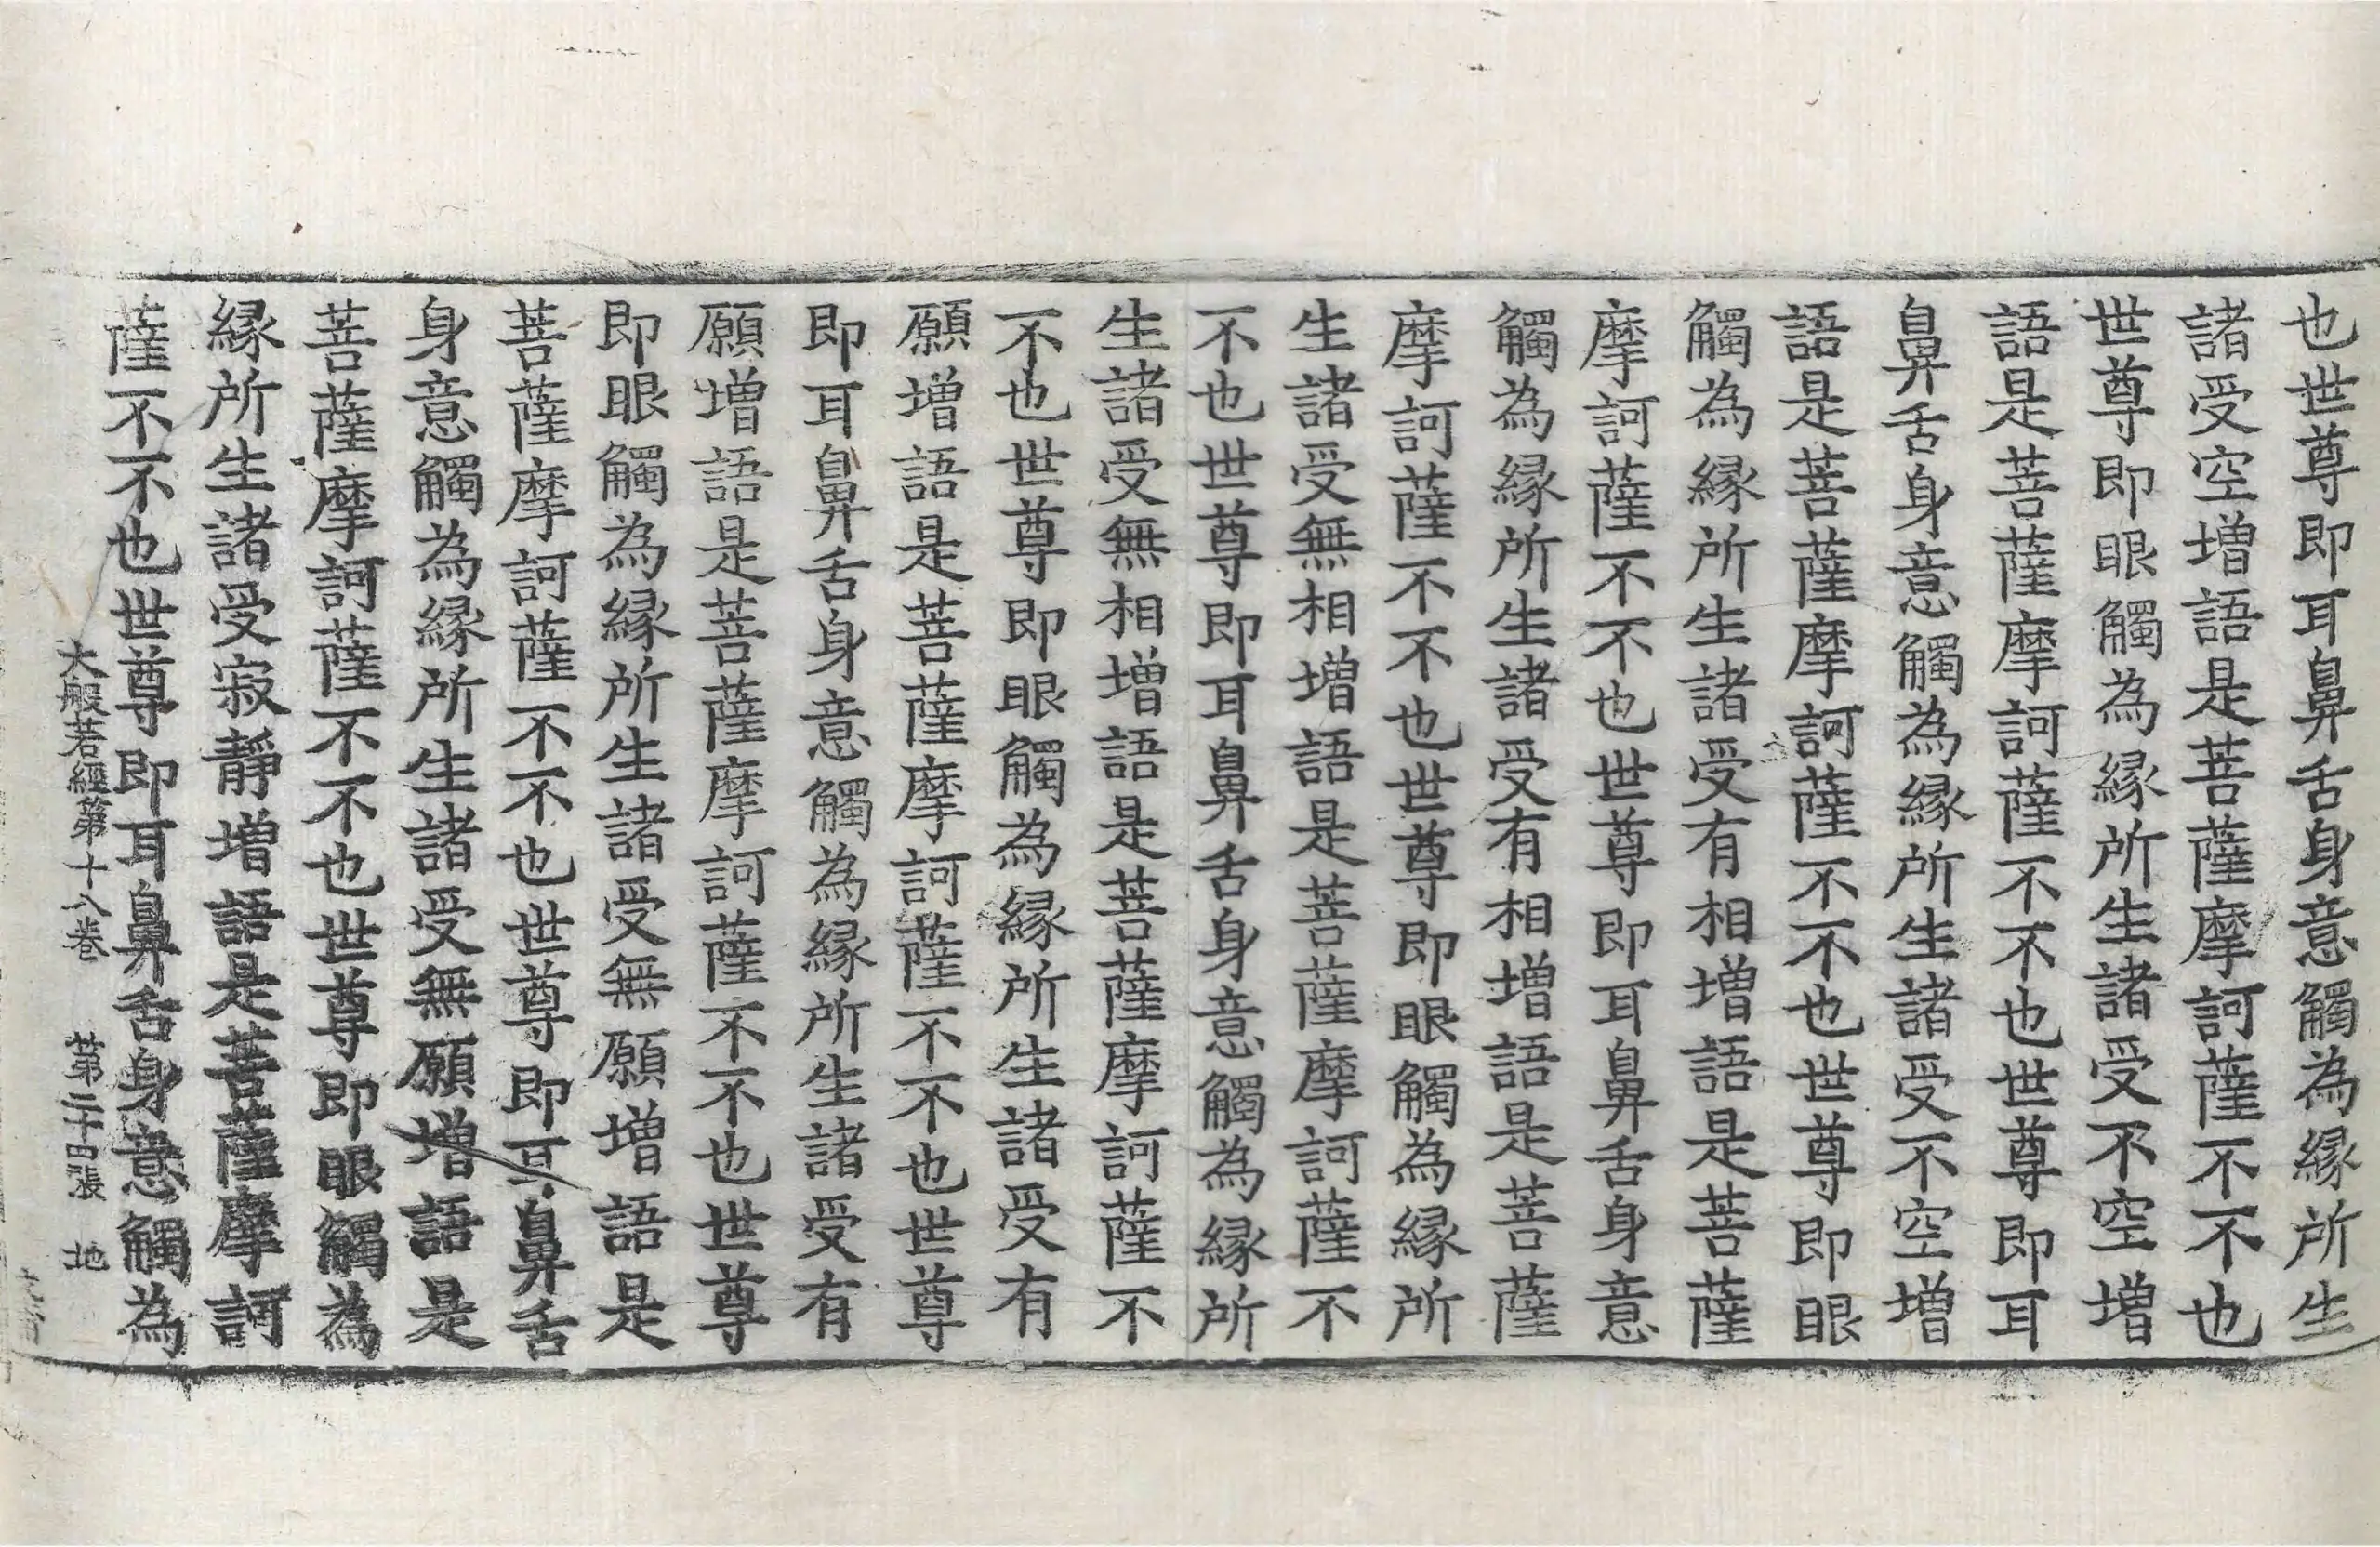 也世尊即耳鼻舌身意觸為縁所生
諸受空增語是菩薩摩訶薩不不也
世尊即眼觸為縁所生諸受不空增
語是菩薩摩訶薩不不也世尊即耳
鼻舌身意觸為縁所生諸受不空增
語是菩薩摩訶薩不不也世尊即眼
觸為縁所生諸受有相增語是菩薩
摩訶薩不不也世尊即耳鼻舌身意
觸為縁所生諸受有相增語是菩薩
摩訶薩不不也世尊即眼觸為縁所
生諸受無相增語是菩薩摩訶薩不
不也世尊即耳鼻舌身意觸為縁所
生諸受無相增語是菩薩摩訶薩不
不也世尊即眼觸為縁所生諸受有
願增語是菩薩摩訶薩不不也世尊
即耳鼻舌身意觸為縁所生諸受有
願增語是菩薩摩訶薩不不也世尊
即眼觸為縁所生諸受無願增語是
菩薩摩訶薩不不也世尊即耳鼻舌
身意觸為縁所生諸受無願增語是
菩薩摩訶薩不不也世尊即眼觸為
縁所生諸受寂靜增語是菩薩摩訶
薩不不也世尊即耳鼻舌身意觸為
大般若經第十八卷 第二十四張 地